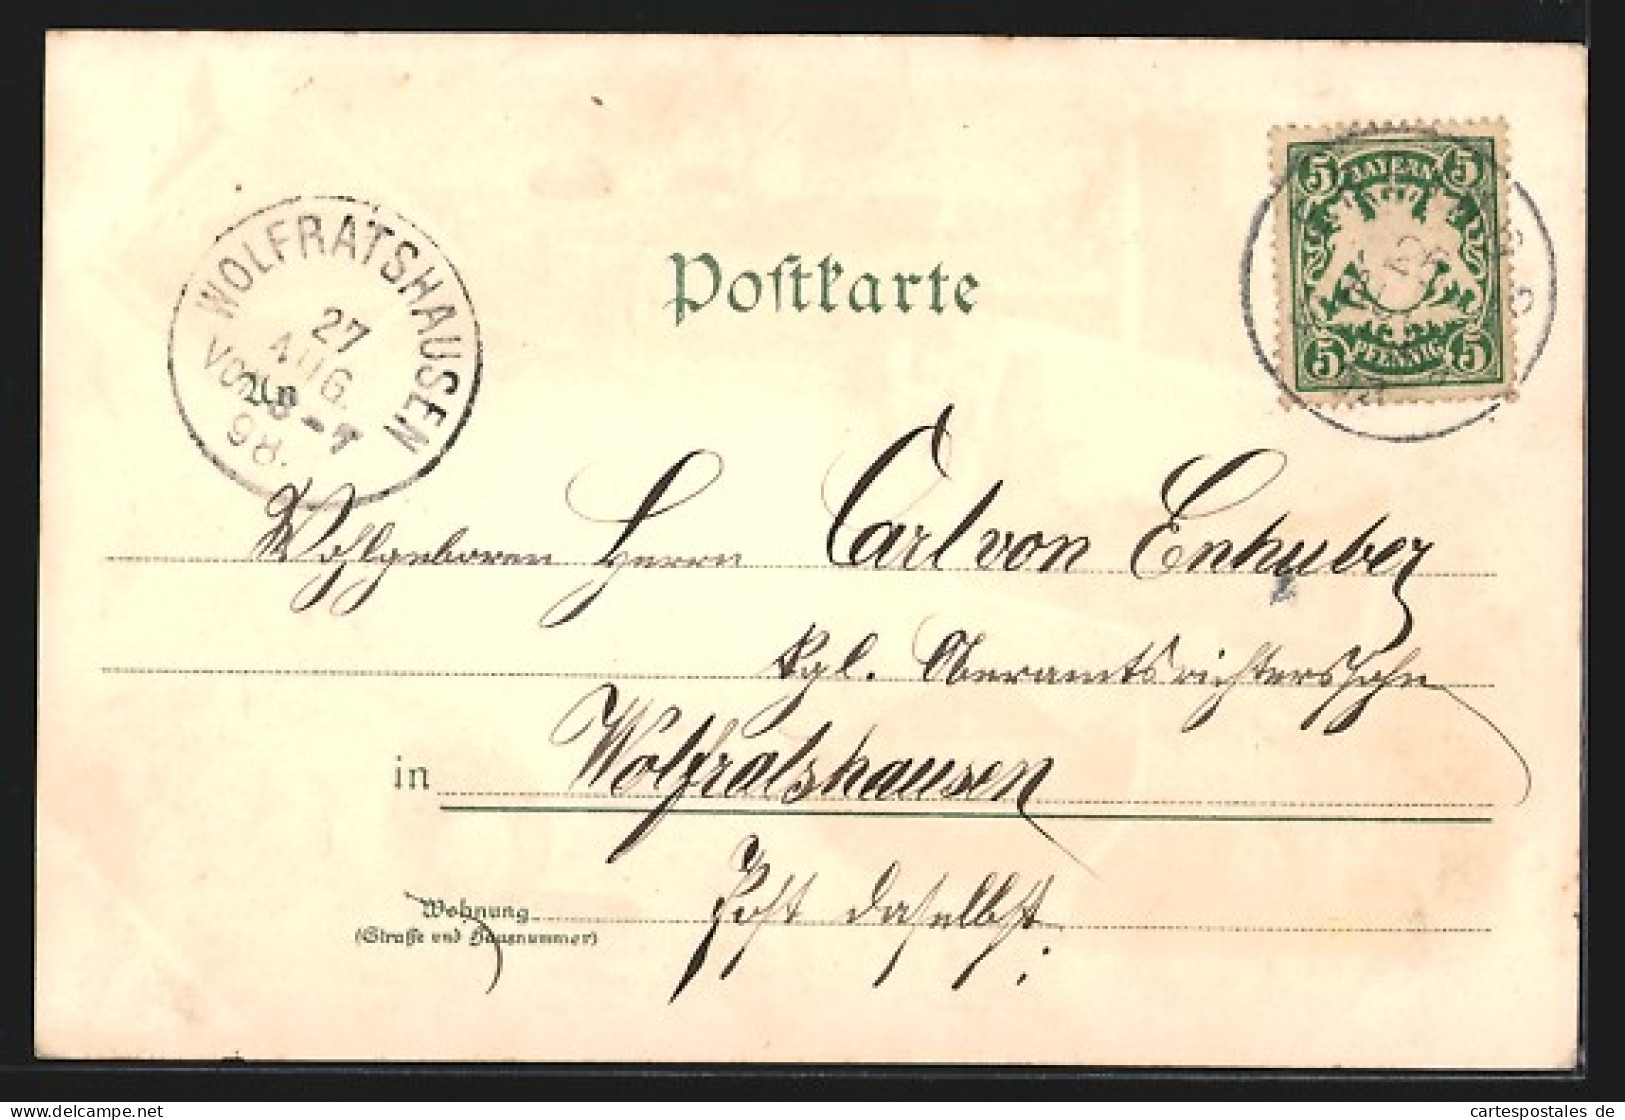 Postkarte
WOLFRATSHAUSEN
27
AUG.
VOR 6-7
98.
BAYERN
5 5
26
5 5
PFENNIG
An
Wohlgeboren Herrn Carl von Enhuber
kgl. Oberamtsrichterssohn
in Wolfratshausen
Wohnung Post daselbst.
(Straße und Hausnummer)
cartespostales de